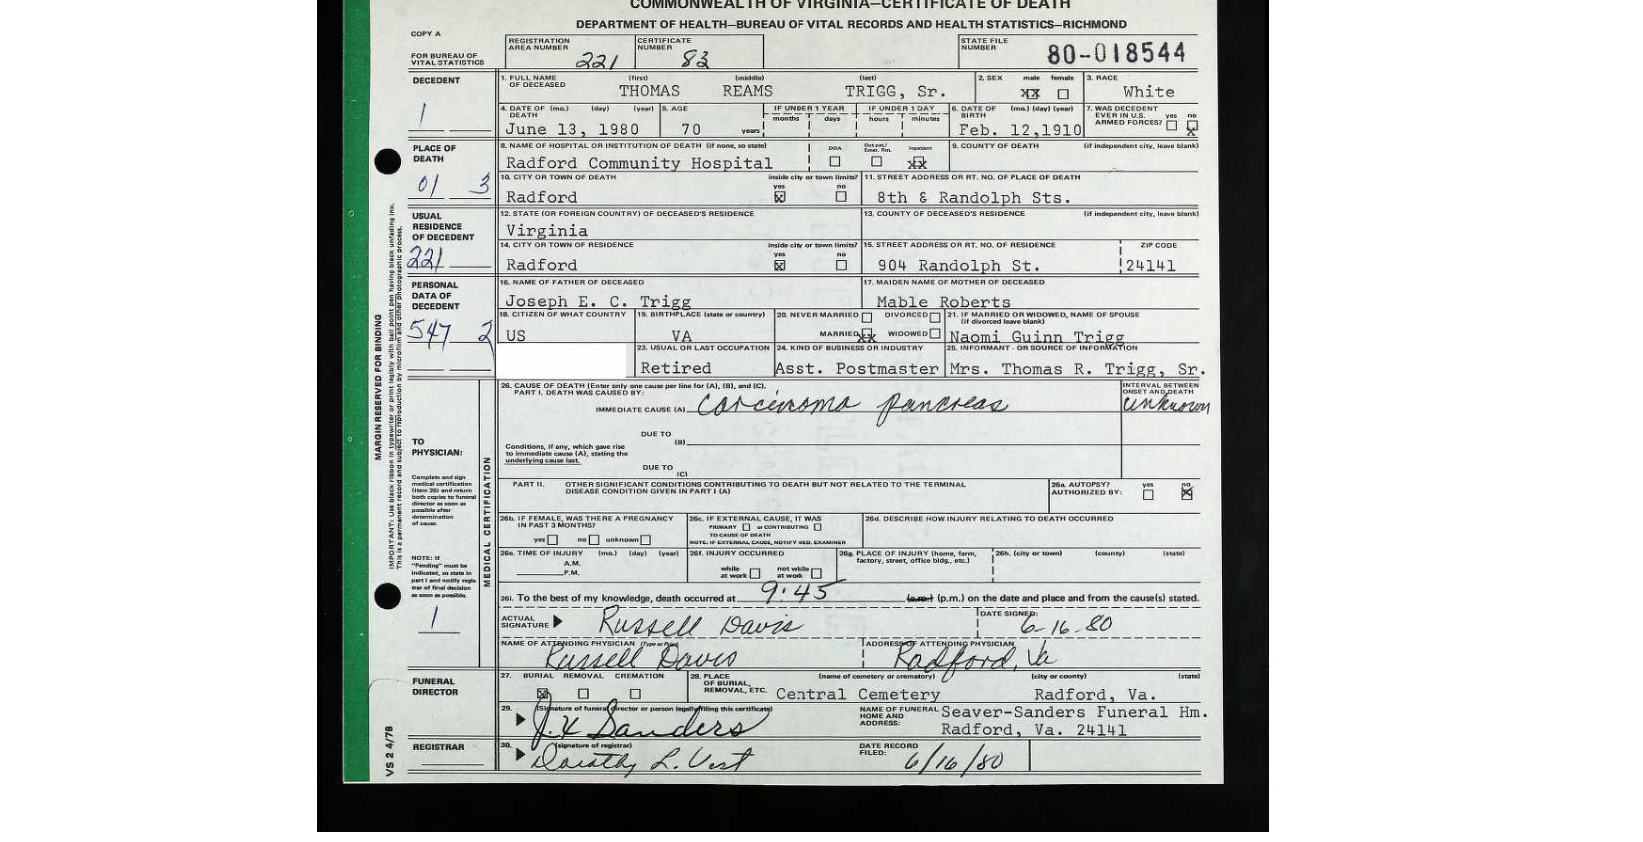 COMMONWEALTH OF VIRGINIA—CERTIFICATE OF DEATH
DEPARTMENT OF HEALTH—BUREAU OF VITAL RECORDS AND HEALTH STATISTICS—RICHMOND
COPY A
FOR BUREAU OF VITAL STATISTICS
REGISTRATION AREA NUMBER 221
CERTIFICATE NUMBER 83
STATE FILE NUMBER 80-018544
DECEDENT
1
1. FULL NAME OF DECEASED (first) (middle) (last)
THOMAS REAMS TRIGG, Sr.
2. SEX male female
XX
3. RACE
White
4. DATE OF DEATH (mo.) (day) (year)
June 13, 1980
5. AGE
70 years
IF UNDER 1 YEAR months days
IF UNDER 1 DAY hours minutes
6. DATE OF BIRTH (mo.) (day) (year)
Feb. 12,1910
7. WAS DECEDENT EVER IN U.S. ARMED FORCES? yes no
X
PLACE OF DEATH
01 3
8. NAME OF HOSPITAL OR INSTITUTION OF DEATH (if none, so state)
Radford Community Hospital
DOA Out pat/ Emer. Rm. Inpatient
XX
9. COUNTY OF DEATH (if independent city, leave blank)
10. CITY OR TOWN OF DEATH inside city or town limits? yes no
Radford X
11. STREET ADDRESS OR RT. NO. OF PLACE OF DEATH
8th & Randolph Sts.
USUAL RESIDENCE OF DECEDENT
221
12. STATE (OR FOREIGN COUNTRY) OF DECEASED'S RESIDENCE
Virginia
13. COUNTY OF DECEASED'S RESIDENCE (if independent city, leave blank)
14. CITY OR TOWN OF RESIDENCE inside city or town limits? yes no
Radford X
15. STREET ADDRESS OR RT. NO. OF RESIDENCE ZIP CODE
904 Randolph St. 24141
PERSONAL DATA OF DECEDENT
547 2
16. NAME OF FATHER OF DECEASED
Joseph E. C. Trigg
17. MAIDEN NAME OF MOTHER OF DECEASED
Mable Roberts
18. CITIZEN OF WHAT COUNTRY
US
19. BIRTHPLACE (state or country)
VA
20. NEVER MARRIED DIVORCED
MARRIED XX WIDOWED
21. IF MARRIED OR WIDOWED, NAME OF SPOUSE (if divorced leave blank)
Naomi Guinn Trigg
23. USUAL OR LAST OCCUPATION
Retired
24. KIND OF BUSINESS OR INDUSTRY
Asst. Postmaster
25. INFORMANT - OR SOURCE OF INFORMATION
Mrs. Thomas R. Trigg, Sr.
MARGIN RESERVED FOR BINDING
IMPORTANT: Use black ribbon in typewriter or print legibly with ball point pen having black unfading ink.
This is a permanent record and subject to reproduction by microfilm and other photographic process.
TO PHYSICIAN:
Complete and sign medical certification (item 26) and return both copies to funeral director as soon as possible after determination of cause.
NOTE: If "Pending" must be indicated, so state in part I and notify registrar of final decision as soon as possible.
1
MEDICAL CERTIFICATION
26. CAUSE OF DEATH (Enter only one cause per line for (A), (B), and (C).
PART I. DEATH WAS CAUSED BY:
INTERVAL BETWEEN ONSET AND DEATH
IMMEDIATE CAUSE (A) Carcinoma pancreas unknown
DUE TO (B)
Conditions, if any, which gave rise to immediate cause (A), stating the underlying cause last.
DUE TO (C)
PART II. OTHER SIGNIFICANT CONDITIONS CONTRIBUTING TO DEATH BUT NOT RELATED TO THE TERMINAL DISEASE CONDITION GIVEN IN PART I (A)
26a. AUTOPSY? AUTHORIZED BY: yes no
X
26b. IF FEMALE, WAS THERE A PREGNANCY IN PAST 3 MONTHS?
yes no unknown
26c. IF EXTERNAL CAUSE, IT WAS
PRIMARY or CONTRIBUTING
TO CAUSE OF DEATH
NOTE: IF EXTERNAL CAUSE, NOTIFY MED. EXAMINER
26d. DESCRIBE HOW INJURY RELATING TO DEATH OCCURRED
26e. TIME OF INJURY (mo.) (day) (year)
A.M.
P.M.
26f. INJURY OCCURRED
while at work not while at work
26g. PLACE OF INJURY (home, farm, factory, street, office bldg., etc.)
26h. (city or town) (county) (state)
26i. To the best of my knowledge, death occurred at 9:45 (a.m.) (p.m.) on the date and place and from the cause(s) stated.
ACTUAL SIGNATURE Russell Davis
DATE SIGNED: 6-16-80
NAME OF ATTENDING PHYSICIAN (Type or Print)
Russell Davis
ADDRESS OF ATTENDING PHYSICIAN
Radford, Va
FUNERAL DIRECTOR
27. BURIAL REMOVAL CREMATION
X
28. PLACE OF BURIAL, REMOVAL, ETC. (name of cemetery or crematory) (city or county) (state)
Central Cemetery Radford, Va.
29. (Signature of funeral director or person legally filing this certificate)
Sanders
NAME OF FUNERAL HOME AND ADDRESS: Seaver-Sanders Funeral Hm.
Radford, Va. 24141
REGISTRAR
30. (signature of registrar)
Dorothy L. Vest
DATE RECORD FILED: 6/16/80
VS 2 4/78